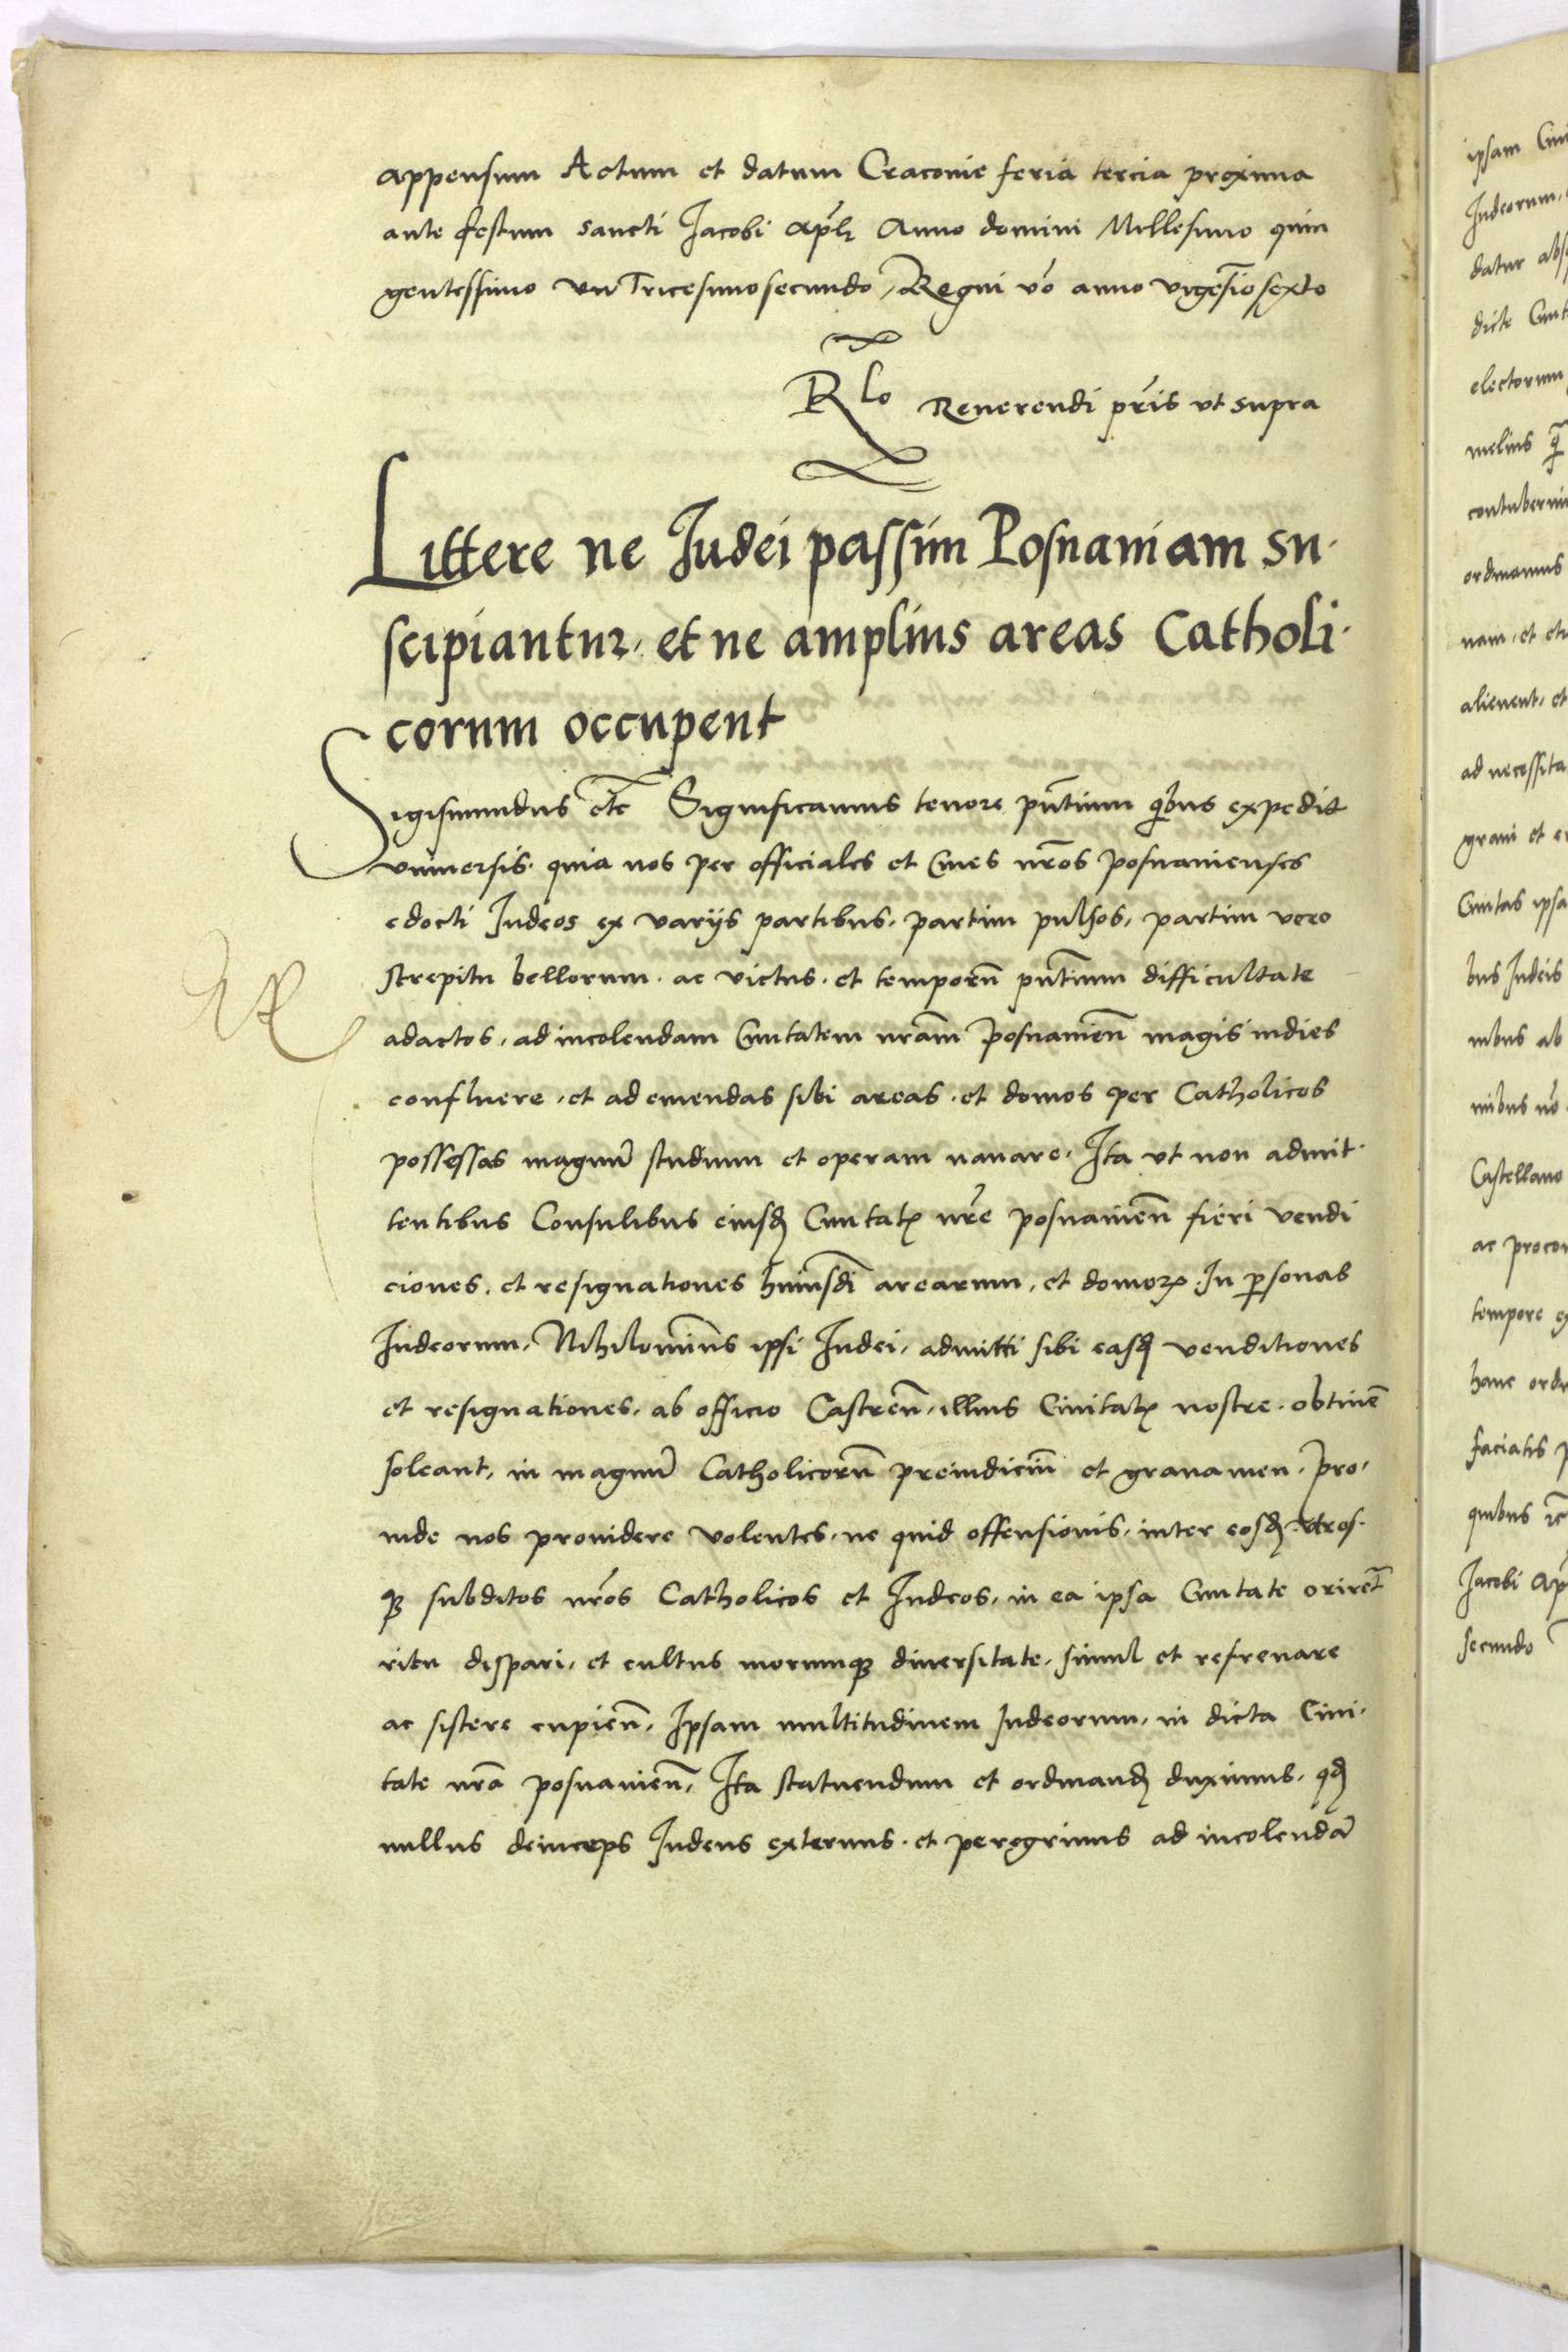 appensum Actum et datum Cracovie feria tercia proxima
ante festum sancti Jacobi apl̃i Anno domini Millesimo quin
gentessimo Tricesimosecundo, Regni võ anno vigesĩosexto
Rlo Reverendi pr̃is vt supra
Littere ne Judei passim Posnaniam su-
scipiantur, et ne amplius areas Catholi-
corum occupent
Sigismundus etc̃ Significamus tenore pñtium q̃bus expedit
vniversis. quia nos per officiales et Cives nr̃os posnanienses
edocti Judeos ex varijs partibus, partim pulsos, partim vero
strepitu bellorum. ac victus. et temporũ pñtium difficultate
adactos, ad incolendam Civitatem nrãm posnanieñ magis indies
confluere, et ad emendas sibi areas. et domos per Catholicos
possessas magnũ studium et operam navare. Ita vt non admit-
tentibus Consulibus eiusdꝫ Civitatꝭ nr̃e posnanieñ fieri vendi
ciones. et resignationes huiusdĩ arearum, et domoꝝ. In ꝑsonas
Judeorum, Nihilominus ipsi Judei, admitti sibi easdꝫ venditiones
et resignationes, ab officio Castreñ, illius Civitatꝭ nostre. obtinẽ
soleant, in magnũ Catholicorũ preiudiciũ et gravamen. Pro-
inde nos providere volentes, ne quid offensionis, inter eosdꝫ vtros-
qꝫ subditos nr̃os Catholicos et Judeos, in ea ipsa Civitate oriret̃
ritu dispari, et cultus morumqꝫ diversitate. simul et refrenare
ac sistere cupieñ, Ipsam multitudinem Judeorum, in dicta Civi-
tate nrã posnanieñ, Ita statuendum et ordinandꝫ duximus. qdꝫ
nullus deinceps Judeus externus. et peregrinus ad incolendã
ipsam
Judeorum,
datur
dicte
electorum
melius
ordinamus
nam, et
alienent, et
ad necessita
gravi et
Civitas ipsa
bus Judeis
nibus ab
nibus
Castellano
ac procon
tempore
hanc ordi
faciatis
quibus
Jacobi Ap
secundo